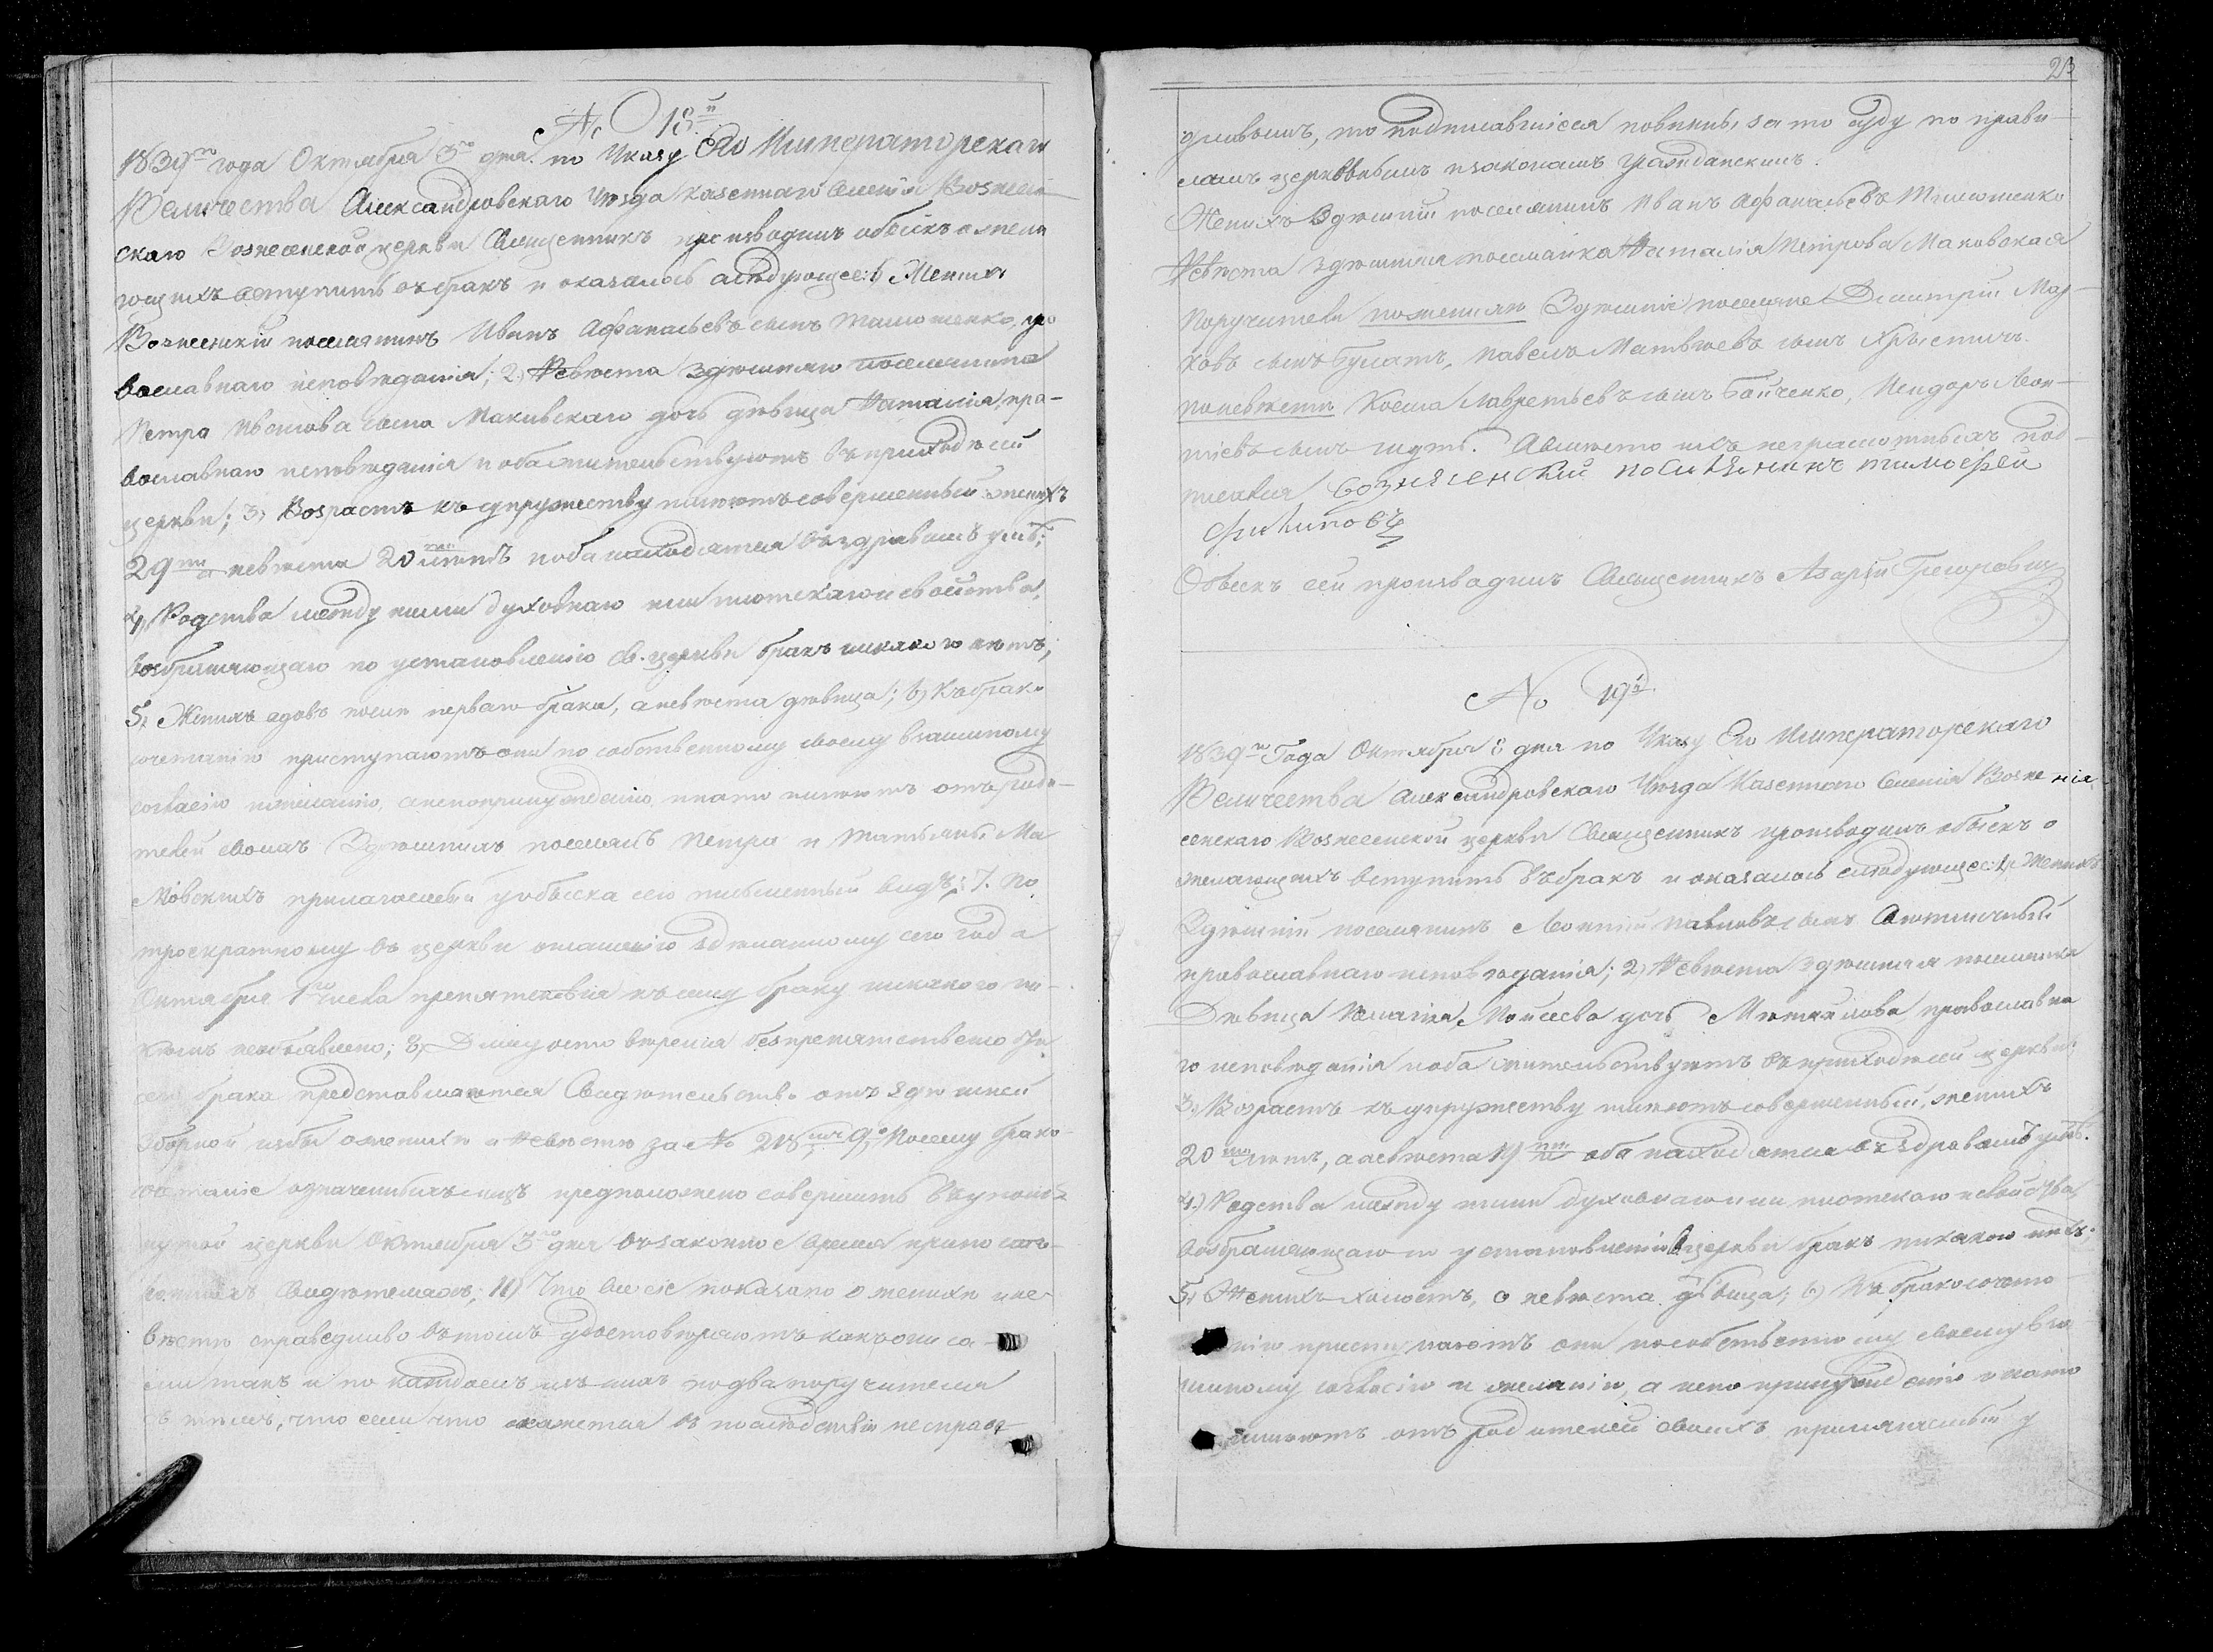 № 18й
1839го года Октября 3го дня по Указу Его Императорскаго
Величества Александровскаго Уезда казеннаго Селенія Вознесен-
скаго Вознесенской церкви Священникъ производилъ обыскъ о желаю
ющихъ вступить въ бракъ и оказалось следующее: 1) Женихъ
Вознесенскій поселянинъ Иванъ Афанасьевъ сынъ пра
вославнаго исповѣданія; 2) Невѣста здѣшняго поселянина
Петра сына Маковскаго дочь дѣвица Наталія, пра-
вославнаго исповѣданія и оба жительствуютъ въ приходѣ сей
церкви; 3) Возрастъ къ супружеству имѣютъ совершенный женихъ
29ти а невѣста 20ти лѣтъ и оба находятся въ здравомъ умѣ;
4) Родства между ними духовнаго или плотскаго и свойства,
возбраняющаго по установленію св. церкви бракъ никакого нѣтъ;
5) Женихъ вдовъ послѣ перваго брака, а невѣста дѣвица; 6) Къ брако
сочетанію приступаютъ они по собственному своему взаимному
согласію и желанію, а не по принужденію, и на то имѣютъ отъ роди-
телей своихъ Здѣшнихъ поселянъ Петра и Татьяны Ма
ковскихъ прилагаемый у обыска сего письменный видъ; 7. По
троекратному въ церкви оглашенію здѣланному сего года
Октября 1го числа препятствія къ сему браку никакого ни-
кемъ необъявлено; 8) Для удостовѣренія безпрепятственно
сего брака представляется Свидѣтельство отъ здѣшней
Зборной избы о женихѣ и Невѣстѣ за № 9) Посему брако-
сочетаніе означенныхъ лицъ предположено совершить въ упомя-
нутой церкви Октября 3го дня въ законное время при посто-
роннихъ Свидѣтеляхъ; 10) Что все сіе показано о женихѣ и не-
вѣстѣ справедливо въ томъ удостовѣряютъ какъ они са-
ми такъ и по каждомъ изъ нихъ по два поручителя
съ тѣмъ, что если что окажется въ послѣдствіи несправе-
23
дливымъ, то подписавшіеся повинны за то суду по прави-
ламъ церковнымъ и законамъ гражданскимъ.
Женихъ Здѣшній поселянинъ Иванъ Афанасьевъ
Невѣста здѣшняя поселянка Наталія Петрова Маковская
Поручители по женихѣ Здѣшніе поселяне Димитрій Мар-
ковъ сынъ Булатъ, Павелъ Матвѣевъ сынъ
по невѣстѣ Косма Лаврентьевъ сынъ Байченко, Исидоръ Леон-
тіевъ сынъ А вмѣсто ихъ неграмотныхъ под-
писался вознясенский посилянинъ тимофей
филиповъ
Обыскъ сей производилъ Священникъ Азарій Григоровичъ
№ 19й
1839го Года Октября 8 дня по Указу Его Императорскаго
Величества Александровскаго Уезда Казеннаго Селенія Возне нія
сенскаго Вознесенской церкви Священникъ производилъ обыскъ о
желающихъ вступить въ бракъ и оказалось следующее: 1) Женихъ
Здѣшній поселянинъ Леонтій Павловъ сынъ
православнаго исповѣданія; 2) Невѣста здѣшняя поселянка
Дѣвица Моисеева дочь православна
го исповѣданія и оба жительствуютъ въ приходѣ сей церкви;
3) Возрастъ къ супружеству имѣютъ совершенный, женихъ
20ти лѣтъ, а невѣста 19ти оба находятся въ здравомъ умѣ.
4) Родства между ними духовнаго или плотскаго и свойства,
возбраняющаго по установленію церкви бракъ никакого нѣтъ.
5) Женихъ холостъ, а невѣста дѣвица; 6) Къ бракосочета
нію приступаютъ они по собственному своему вза
имному согласію и желанію, а не по принужденію и на то
имѣютъ отъ родителей своихъ прилагаемый у